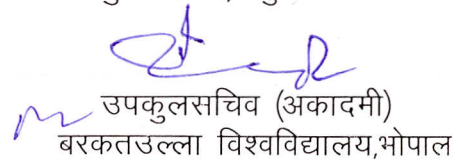 उपकुलसचिव (अकादमी)
बरकतउल्ला विश्वविद्यालय,भोपाल